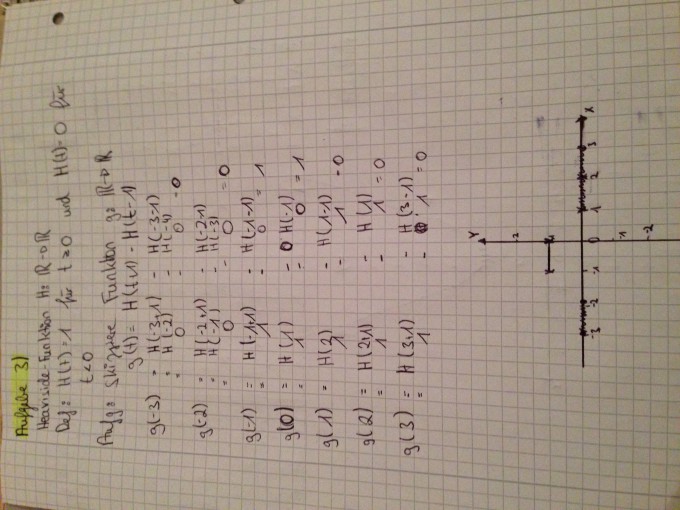 Aufgabe 3)
Heaviside-Funktion H: ℝ→ℝ
Def: H(t)=1 für t≥0 und H(t)=0 für
t<0
Aufg: Skizziere Funktion g: ℝ→ℝ
g(t) = H(t+1) - H(t-1)
g(-3) = H(-3+1) - H(-3-1)
= H(-2) - H(-4)
= 0 - 0 = 0
g(-2) = H(-2+1) - H(-2-1)
= H(-1) - H(-3)
= 0 - 0 = 0
g(-1) = H(-1+1) - H(-1-1)
= 1 - 0 = 1
g(0) = H(1) - H(-1)
= 1 - 0 = 1
g(1) = H(2) - H(1-1)
= 1 - 1 = 0
g(2) = H(2+1) - H(1)
= 1 - 1 = 0
g(3) = H(3+1) - H(3-1)
= 1 - 1 = 0
Y
2
-3 -2 -1 0 1 2 3 X
-1
-2